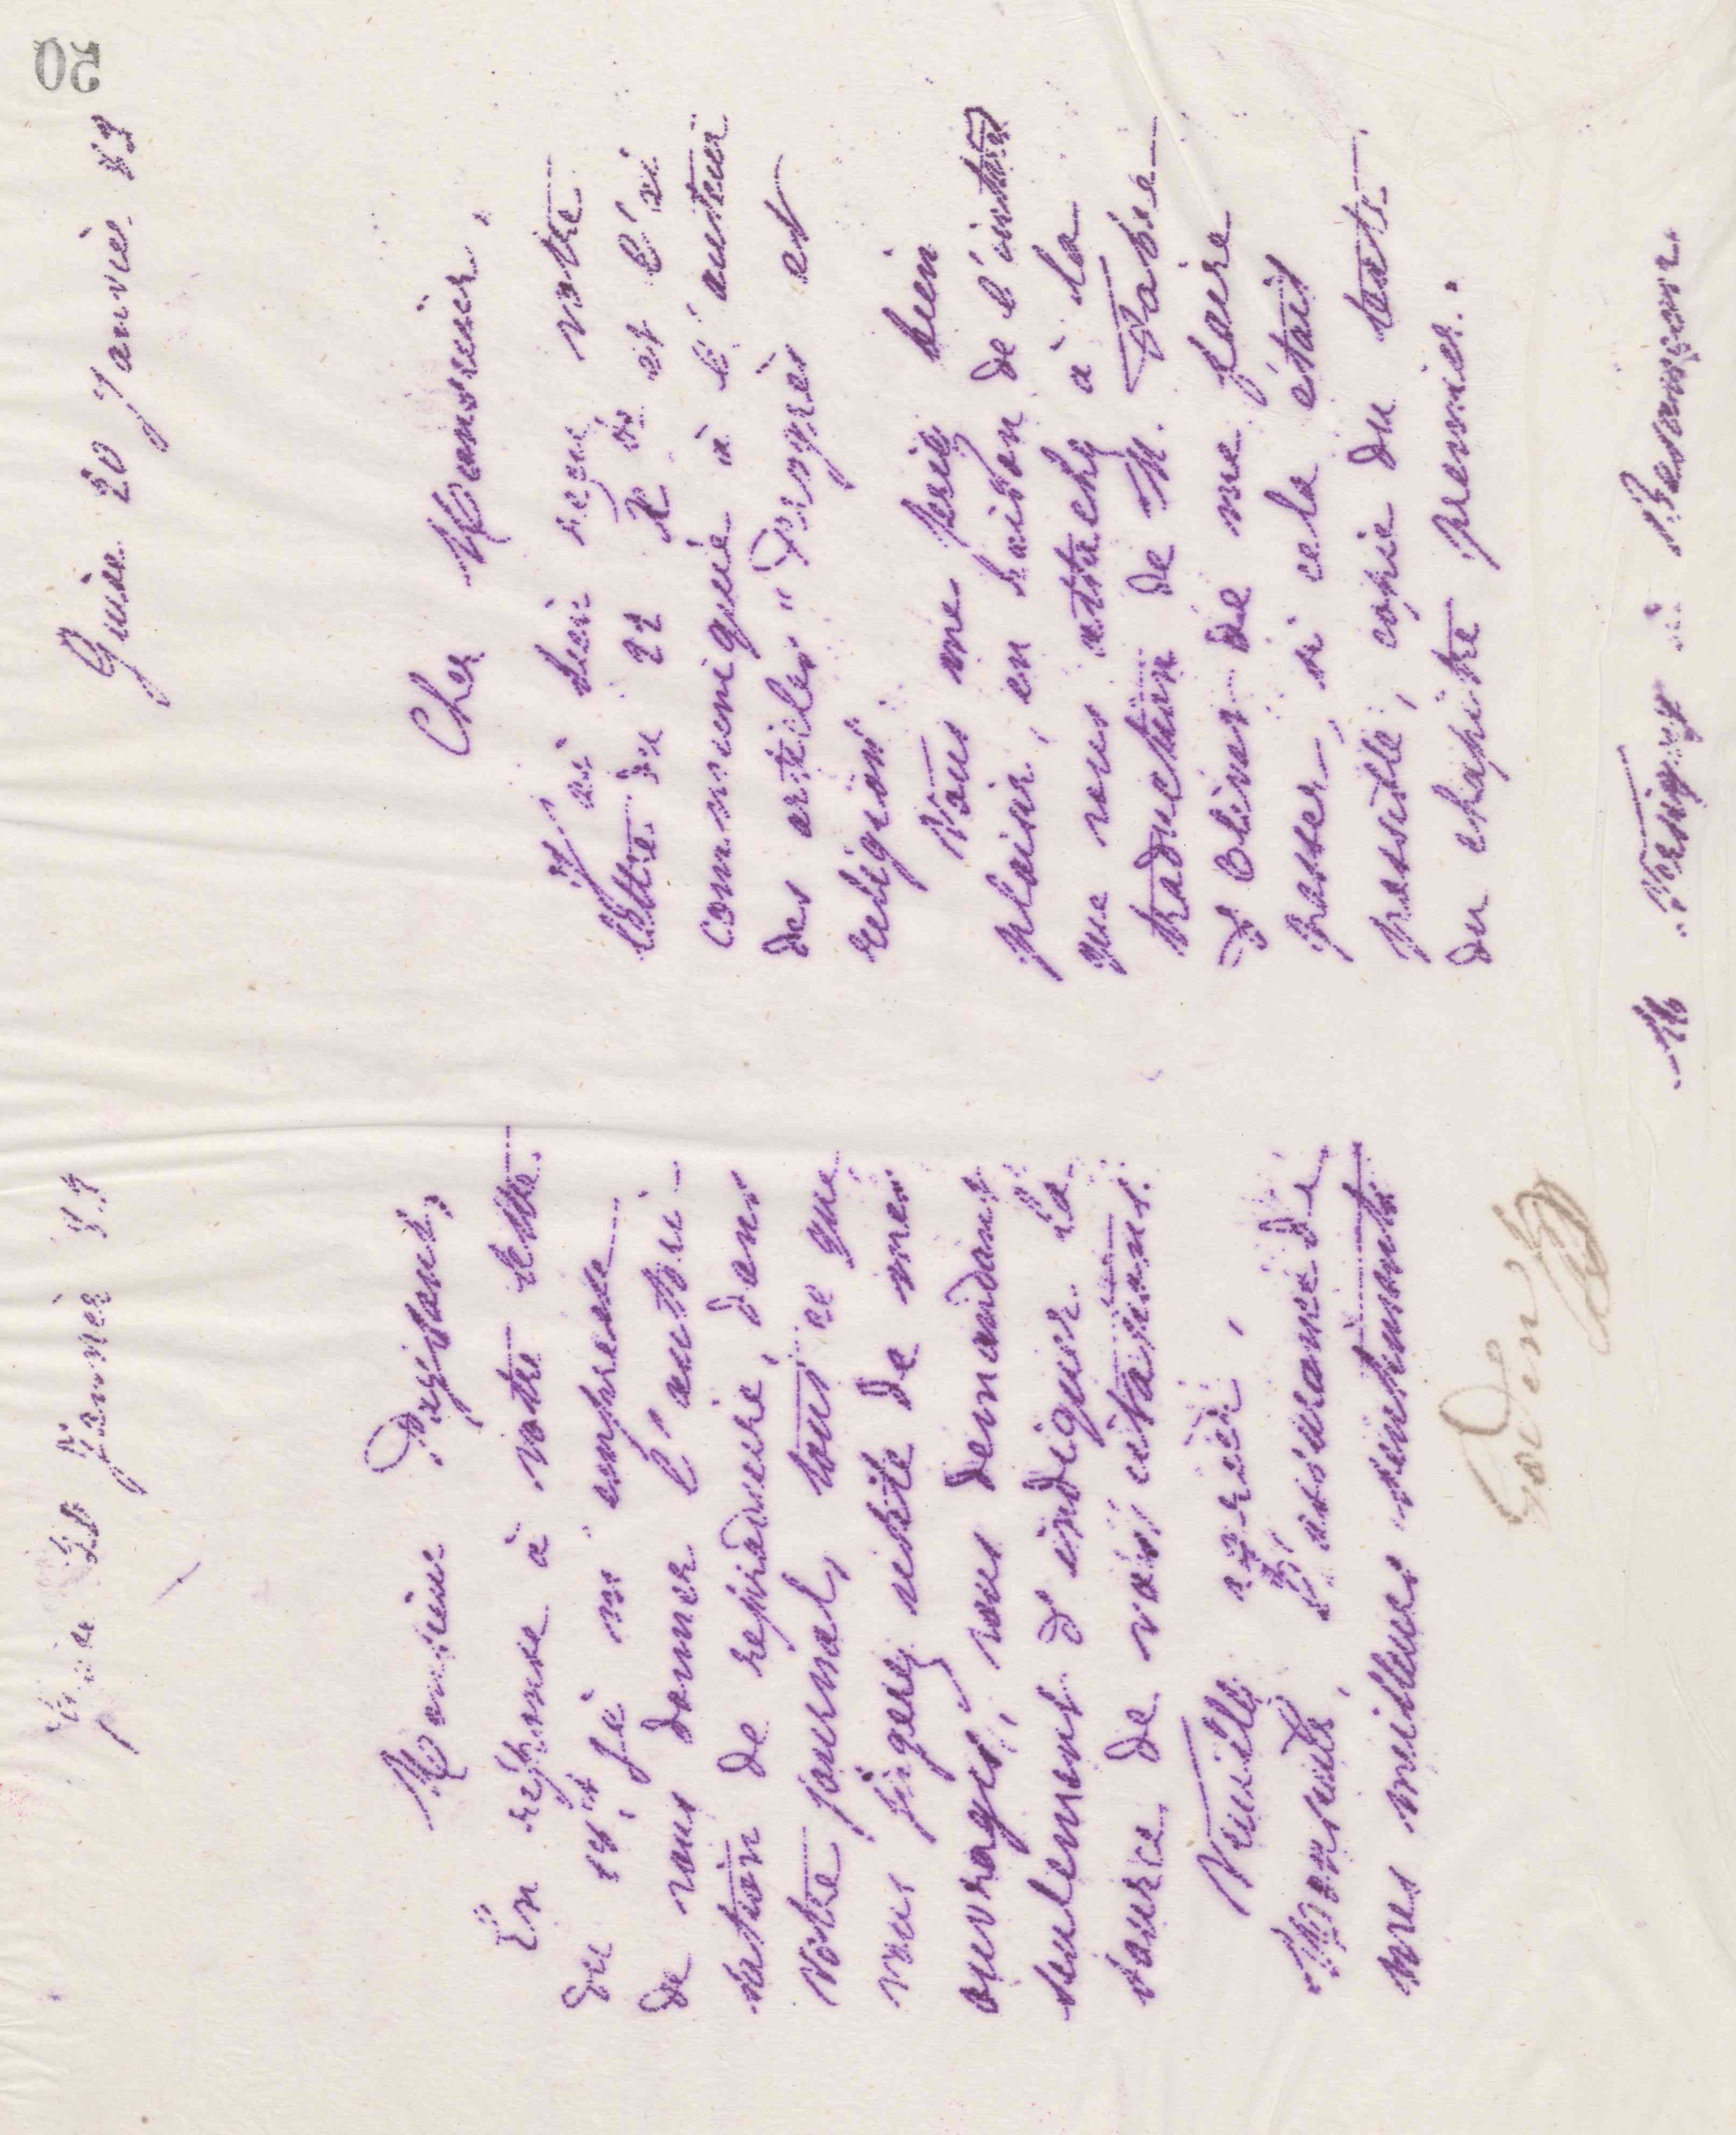 Guise 20 Janvier 83
Monsieur Pagbout,
En réponse à votre lettre
du 18 ct, je m'empresse
de vous donner l'autori-
sation de reproduire, dans
votre journal, tout ce que
vous jugerez utile de mes
ouvrages, vous demandant
seulement d'indiquer la
source de vos citations.
Veuillez agréer,
Monsieur, l'assurance de
mes meilleurs sentiments
Godin
50
Guise 20 Janvier 83
Cher Monsieur,
J'ai bien reçu votre
lettre du 22 X bre et l'ai
communiquée à l'auteur
des articles "Progrès et
religion.
Vous me feriez bien
plaisir, en raison de l'intérêt
que vous attachez à la
traduction de M. Fabre
d'Olivet de me faire
passer, si cela était
possible, copie du texte
du chapitre premier.
M à Besançon